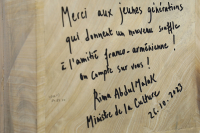 Merci aux jeunes générations
qui donnent un nouveau souffle
à l'amitié franco-arménienne !
On compte sur vous !
Rima Abdul Malak
Ministre de la Culture
26.10.2023